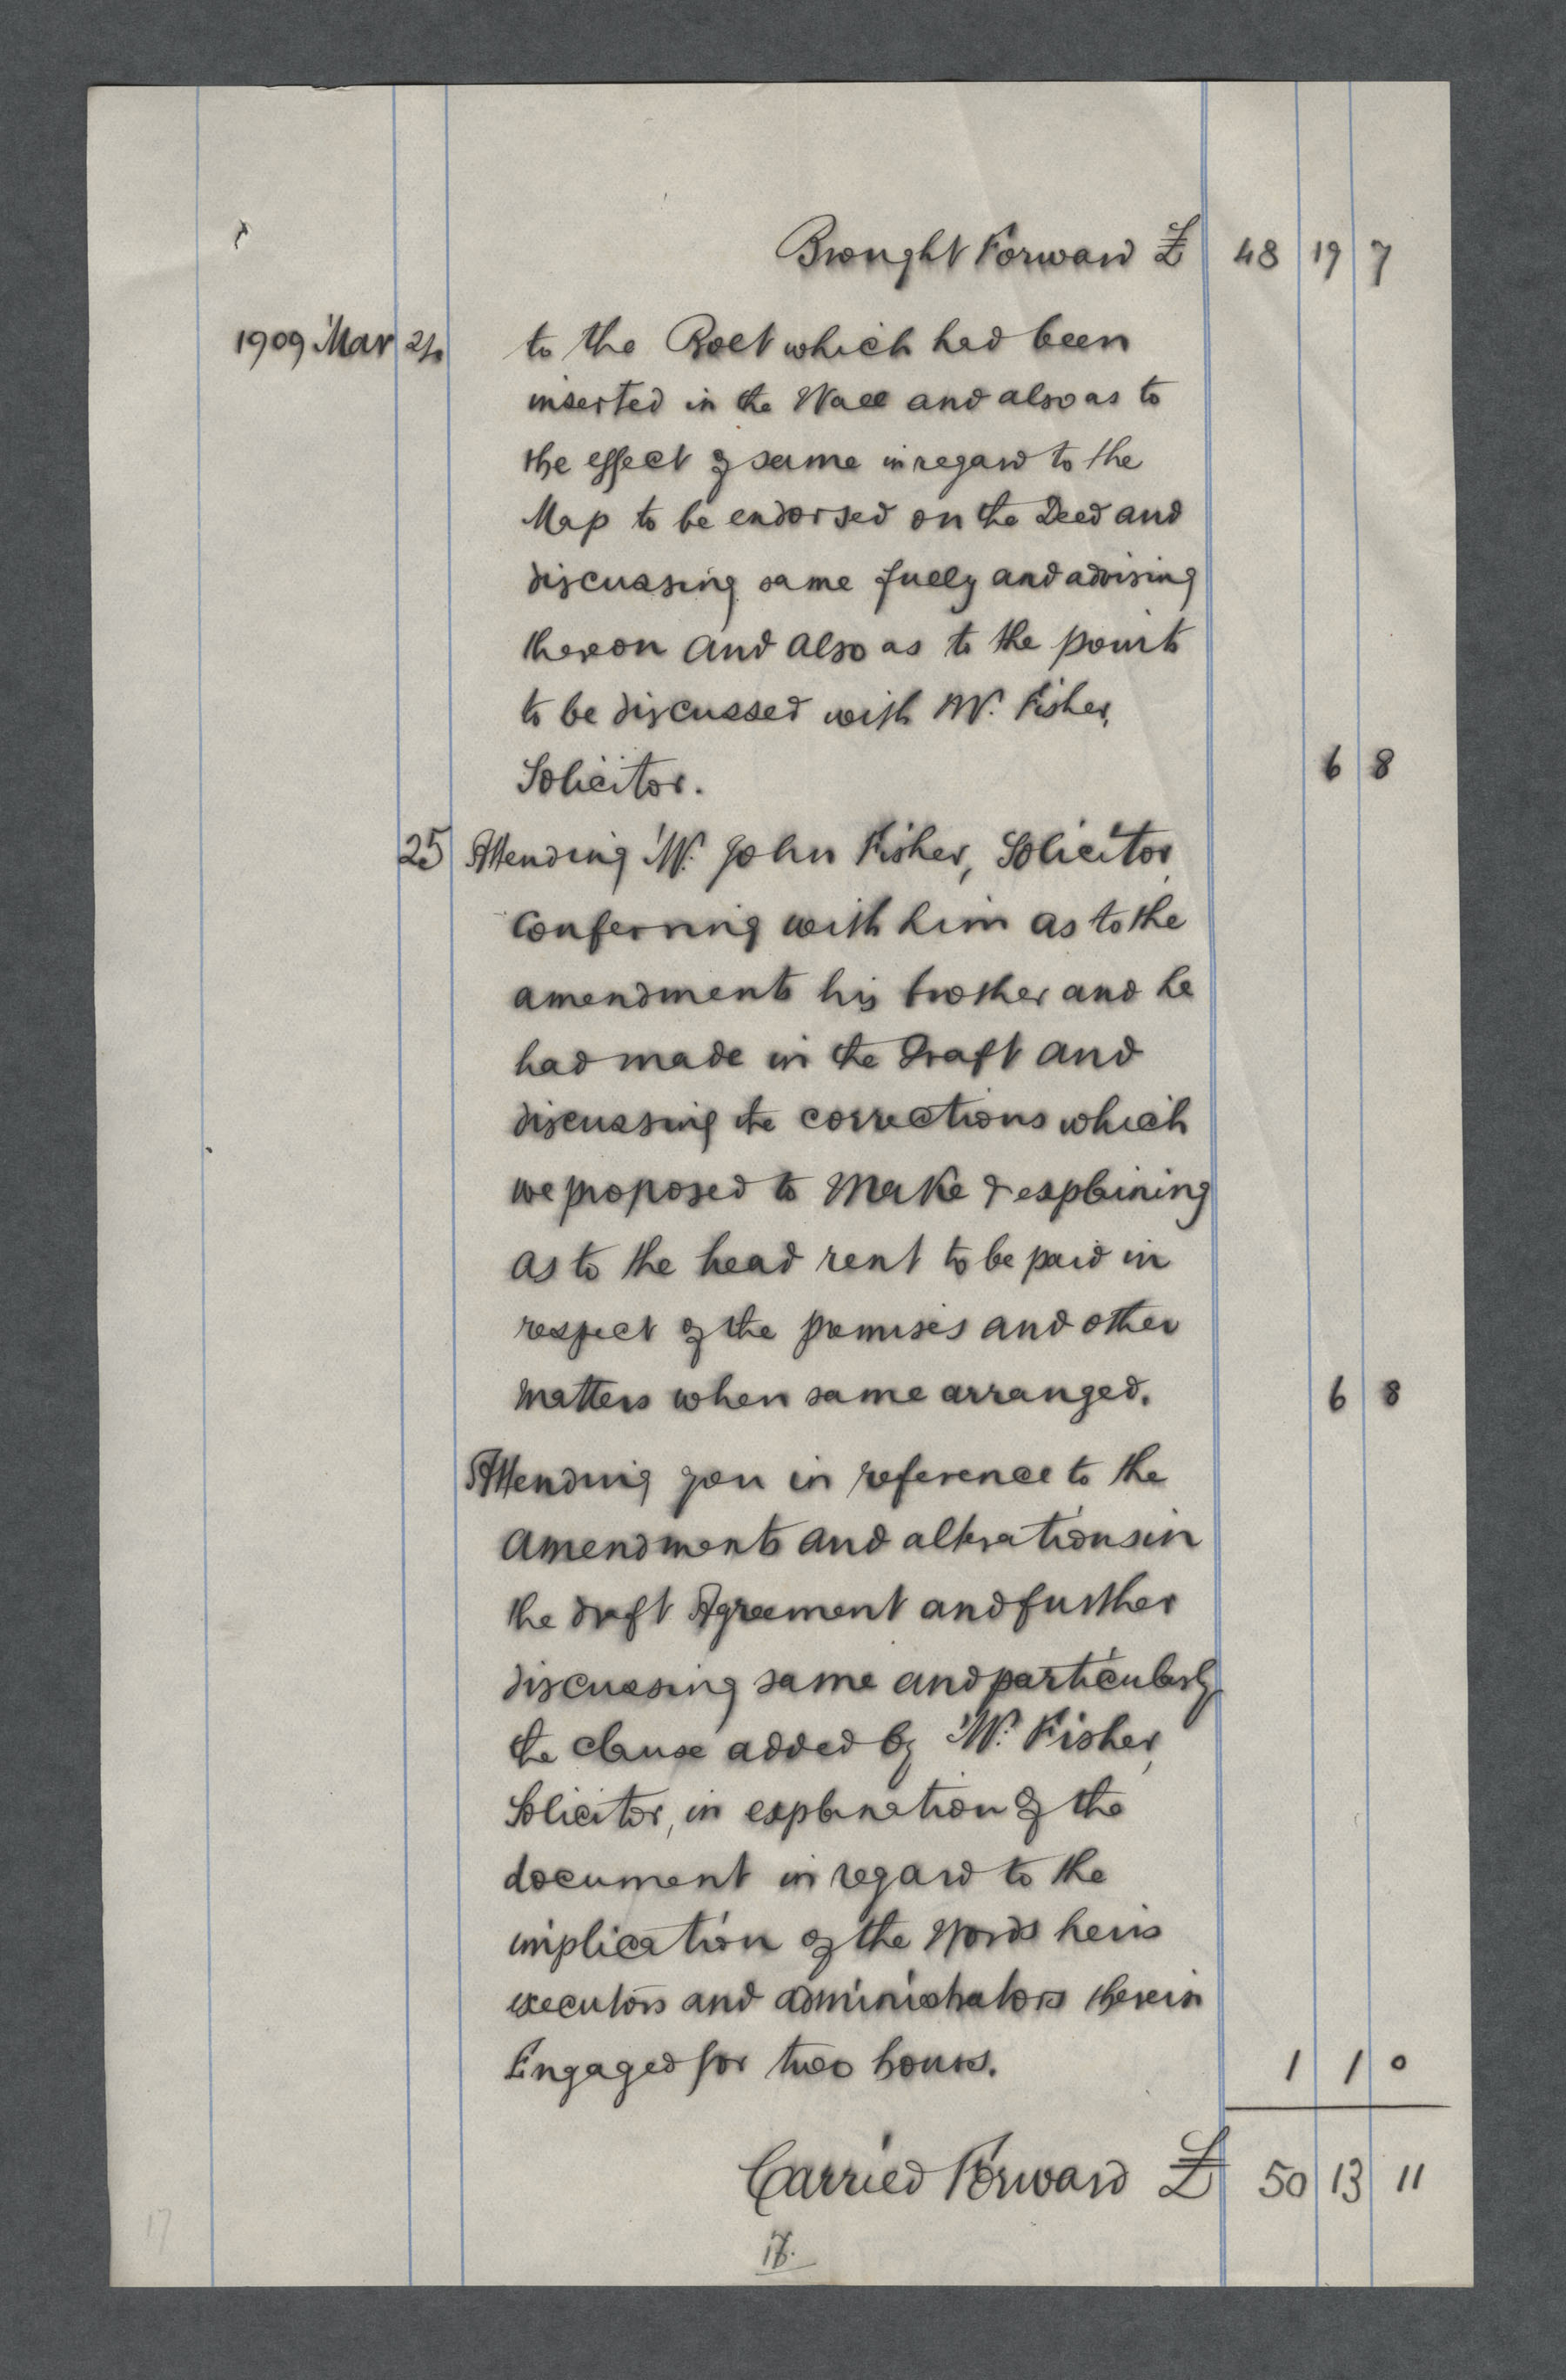 Brought Forward £ 48 19 7
1909 Mar 24 to the Bolt which had been
inserted in the Wall and also as to
the effect of same in regard to the
Map to be endorsed on the Deed and
discussing same fully and advising
thereon and also as to the points
to be discussed with Mr. Fisher,
Solicitor. 6 8
25 Attending Mr. John Fisher, Solicitor,
Conferring with him as to the
amendments his brother and he
had made in the Draft and
discussing the corrections which
we proposed to make & explaining
as to the head rent to be paid in
respect of the premises and other
matters when same arranged. 6 8
Attending you in reference to the
amendments and alterations in
the draft Agreement and further
discussing same and particularly
the clause added by Mr. Fisher,
Solicitor, in explanation of the
document in regard to the
implication of the words heirs
executors and administrators therein
Engaged for two hours. 1 1 0
Carried Forward £ 50 13 11
17.
17